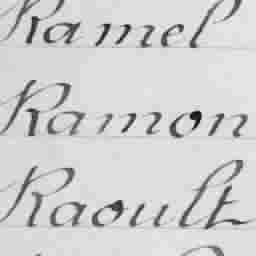 Ramel
Ramon
Raoult